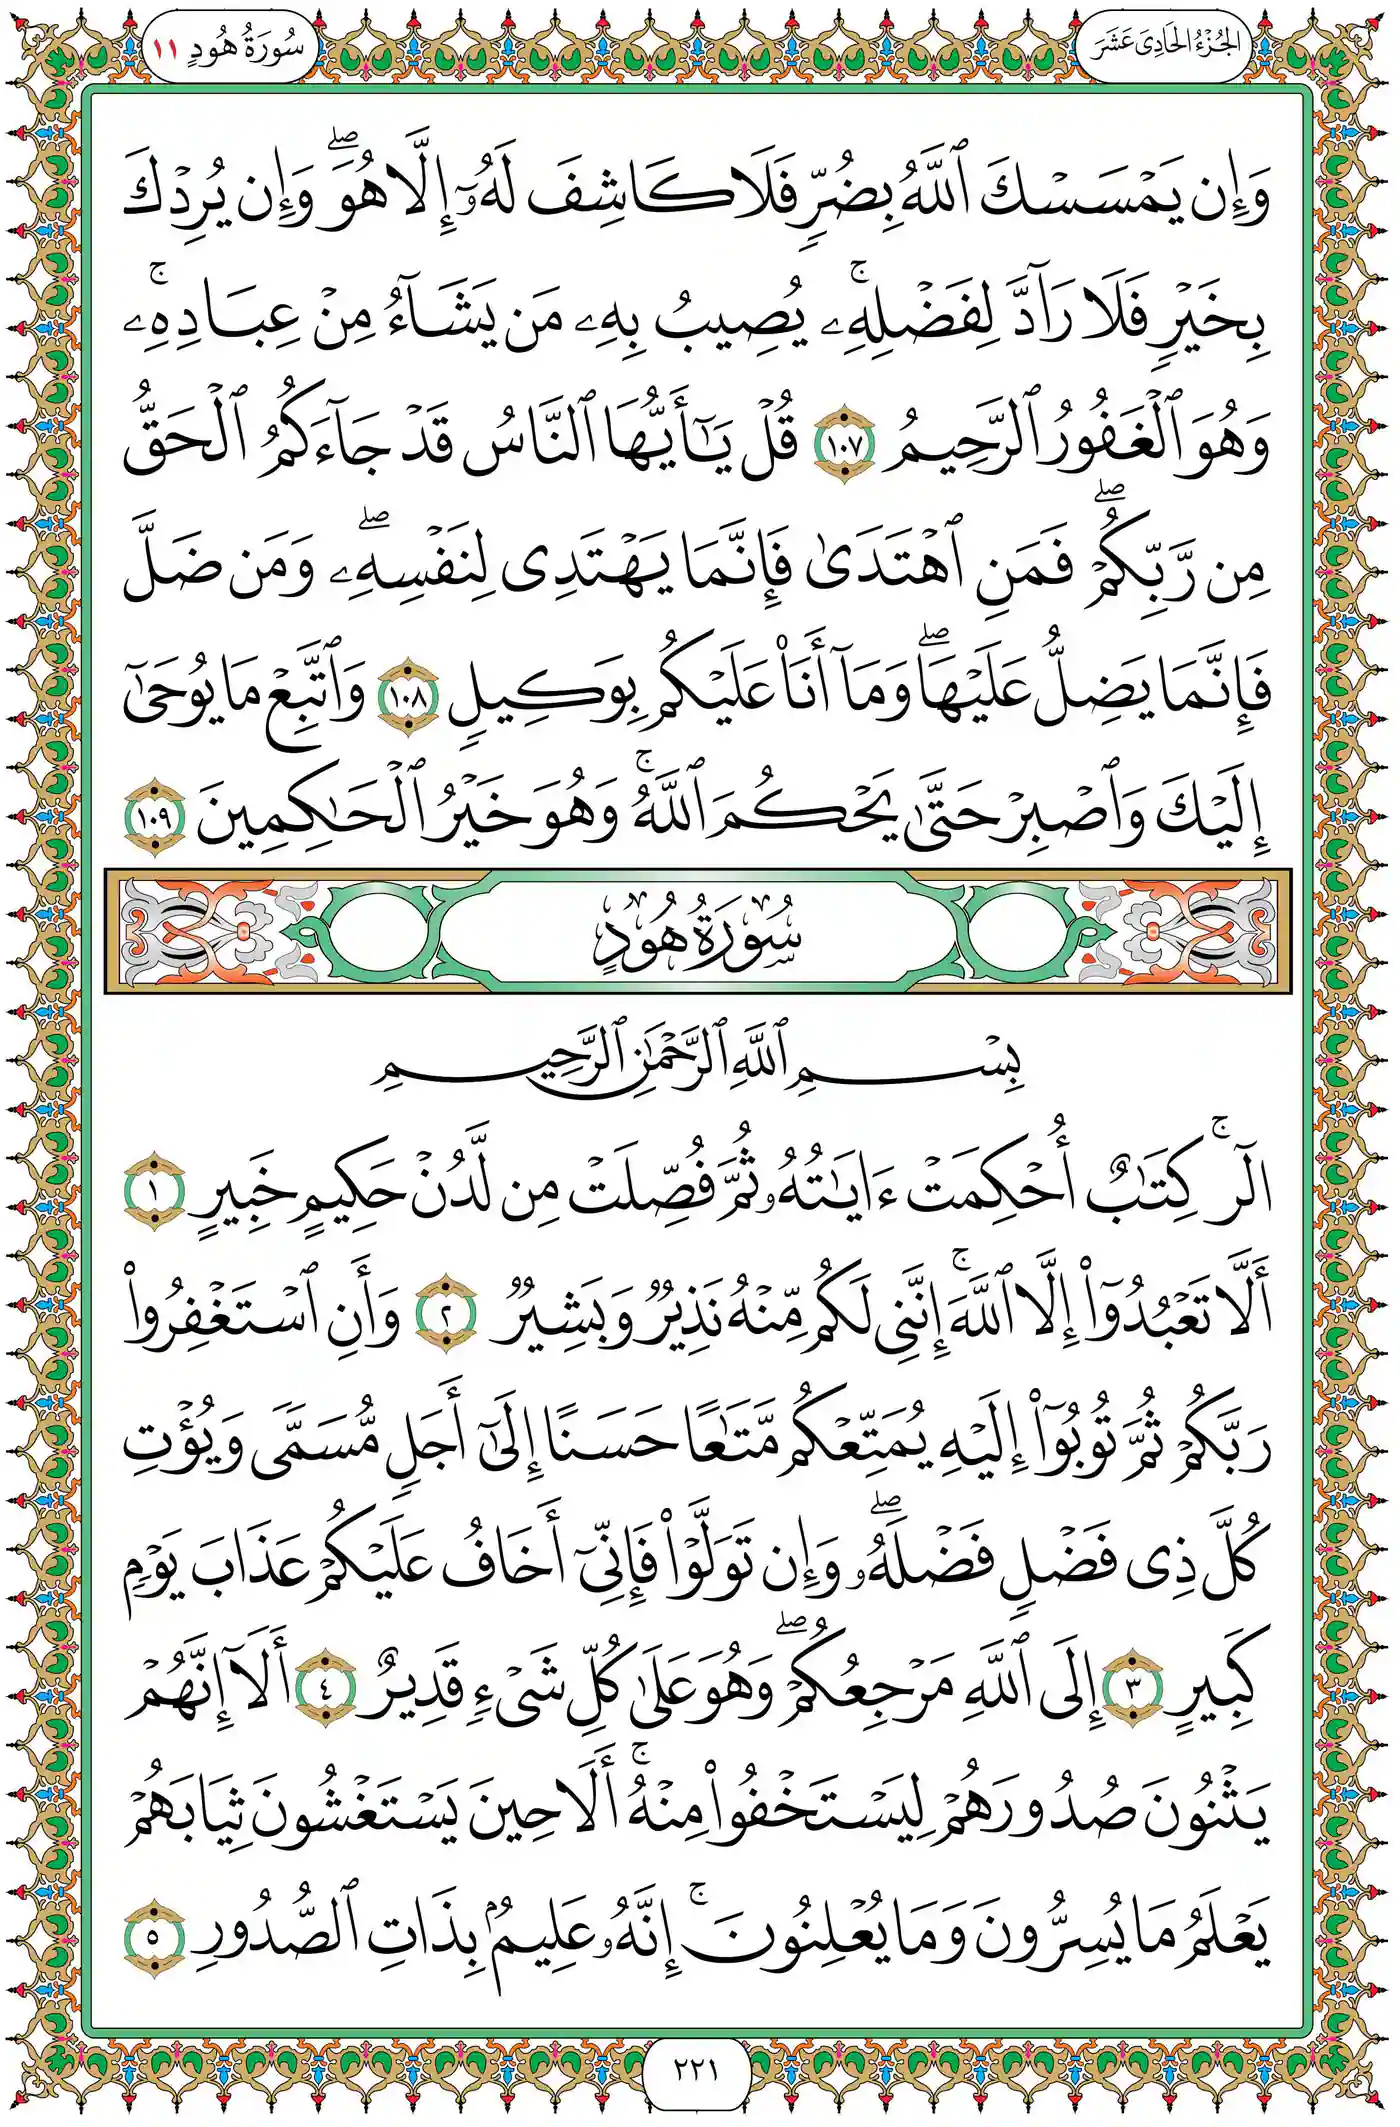 الجُزْءُ الحَادِىَ عَشَرَ
سُورَةُ هُودٍ ١١
وَإِن يَمْسَسْكَ ٱللَّهُ بِضُرٍّ فَلَا كَاشِفَ لَهُۥٓ إِلَّا هُوَۖ وَإِن يُرِدْكَ
بِخَيْرٍ فَلَا رَآدَّ لِفَضْلِهِۦۚ يُصِيبُ بِهِۦ مَن يَشَآءُ مِنْ عِبَادِهِۦۚ
وَهُوَ ٱلْغَفُورُ ٱلرَّحِيمُ ١٠٧ قُلْ يَٰٓأَيُّهَا ٱلنَّاسُ قَدْ جَآءَكُمُ ٱلْحَقُّ
مِن رَّبِّكُمْۖ فَمَنِ ٱهْتَدَىٰ فَإِنَّمَا يَهْتَدِى لِنَفْسِهِۦۖ وَمَن ضَلَّ
فَإِنَّمَا يَضِلُّ عَلَيْهَاۖ وَمَآ أَنَا۠ عَلَيْكُم بِوَكِيلٍ ١٠٨ وَٱتَّبِعْ مَا يُوحَىٰٓ
إِلَيْكَ وَٱصْبِرْ حَتَّىٰ يَحْكُمَ ٱللَّهُۚ وَهُوَ خَيْرُ ٱلْحَٰكِمِينَ ١٠٩
سُورَةُ هُودٍ
بِسْمِ ٱللَّهِ ٱلرَّحْمَٰنِ ٱلرَّحِيمِ
الٓرۚ كِتَٰبٌ أُحْكِمَتْ ءَايَٰتُهُۥ ثُمَّ فُصِّلَتْ مِن لَّدُنْ حَكِيمٍ خَبِيرٍ ١
أَلَّا تَعْبُدُوٓا۟ إِلَّا ٱللَّهَۚ إِنَّنِى لَكُم مِّنْهُ نَذِيرٌ وَبَشِيرٌ ٢ وَأَنِ ٱسْتَغْفِرُوا۟
رَبَّكُمْ ثُمَّ تُوبُوٓا۟ إِلَيْهِ يُمَتِّعْكُم مَّتَٰعًا حَسَنًا إِلَىٰٓ أَجَلٍ مُّسَمًّى وَيُؤْتِ
كُلَّ ذِى فَضْلٍ فَضْلَهُۥۖ وَإِن تَوَلَّوْا۟ فَإِنِّىٓ أَخَافُ عَلَيْكُمْ عَذَابَ يَوْمٍ
كَبِيرٍ ٣ إِلَى ٱللَّهِ مَرْجِعُكُمْۖ وَهُوَ عَلَىٰ كُلِّ شَىْءٍ قَدِيرٌ ٤ أَلَآ إِنَّهُمْ
يَثْنُونَ صُدُورَهُمْ لِيَسْتَخْفُوا۟ مِنْهُۚ أَلَا حِينَ يَسْتَغْشُونَ ثِيَابَهُمْ
يَعْلَمُ مَا يُسِرُّونَ وَمَا يُعْلِنُونَۚ إِنَّهُۥ عَلِيمٌۢ بِذَاتِ ٱلصُّدُورِ ٥
٢٢١